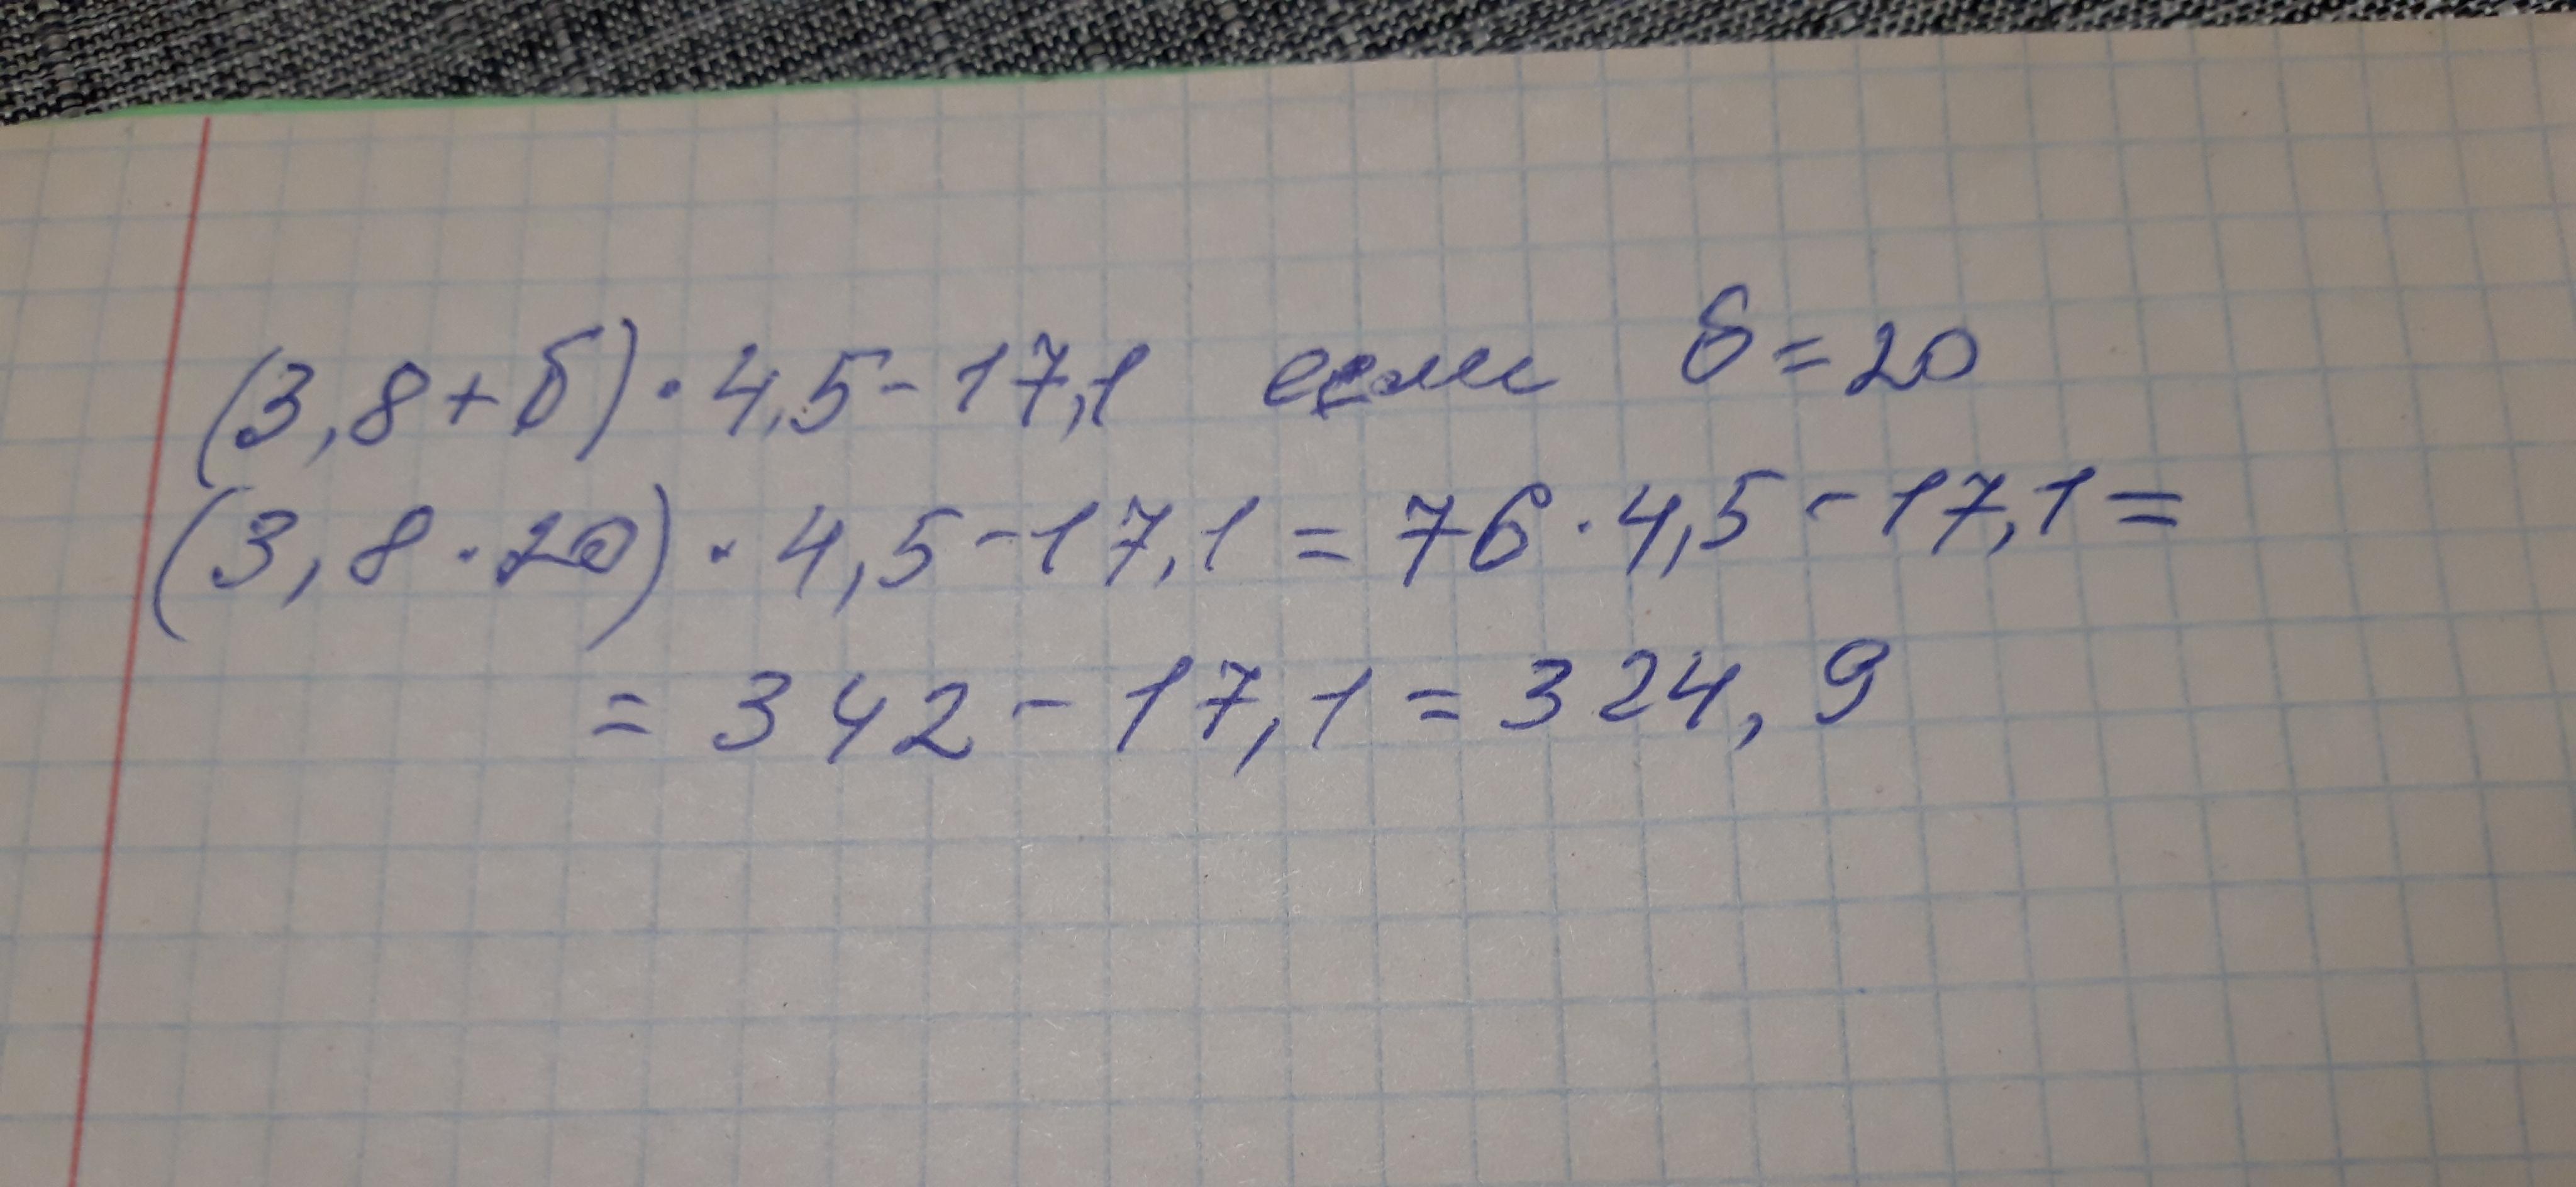 (3,8+б)·4,5-17,1 если б=20
(3,8·20)·4,5-17,1=76·4,5-17,1=
=342-17,1=324,9